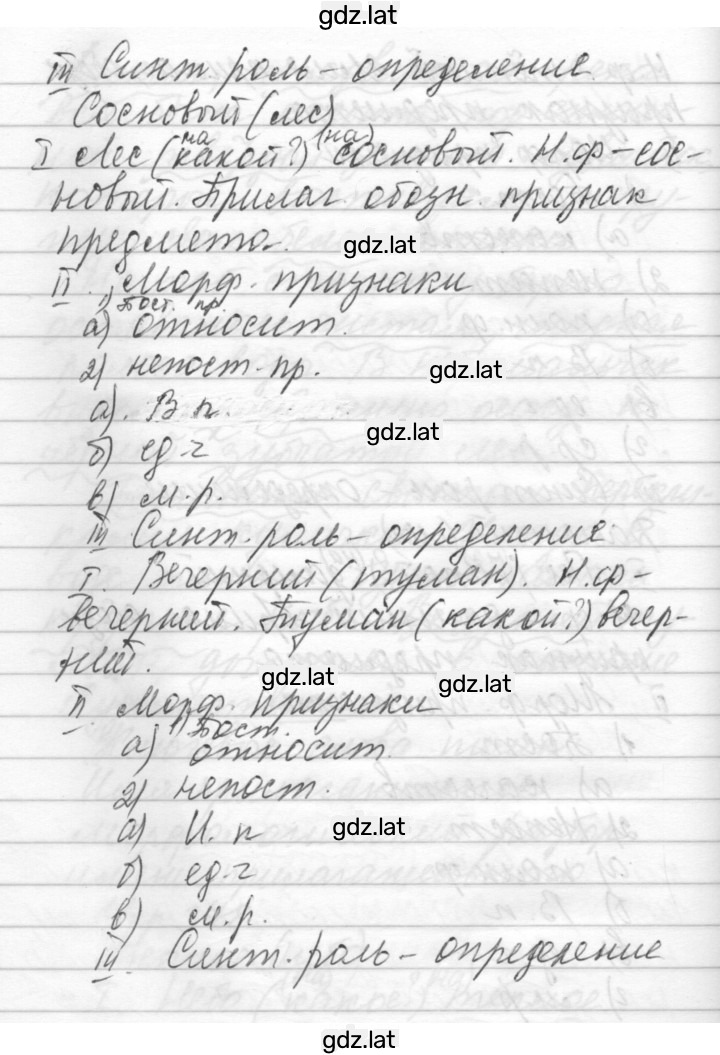 gdz.lat
III Синт. роль – определение.
Сосновый (лес)
на (на)
I Лес (какой?) сосновый. Н.ф – сос-
новый. Прилаг. обозн. признак
предмета.
gdz.lat
II. Морф. признаки
1) Пост. пр.
а) относит.
2) непост. пр.
gdz.lat
а). В п.
gdz.lat
б) ед.ч
в) м.р.
III Синт. роль – определение
I. Вечерний (туман). Н.ф –
вечерний. Туман (какой?) вечер-
ний.
gdz.lat
gdz.lat
II. Морф. признаки
1) Пост.
а) относит.
2) непост.
а) И. п
gdz.lat
б) ед.ч
в) м.р.
III Синт. роль – определение
gdz.lat